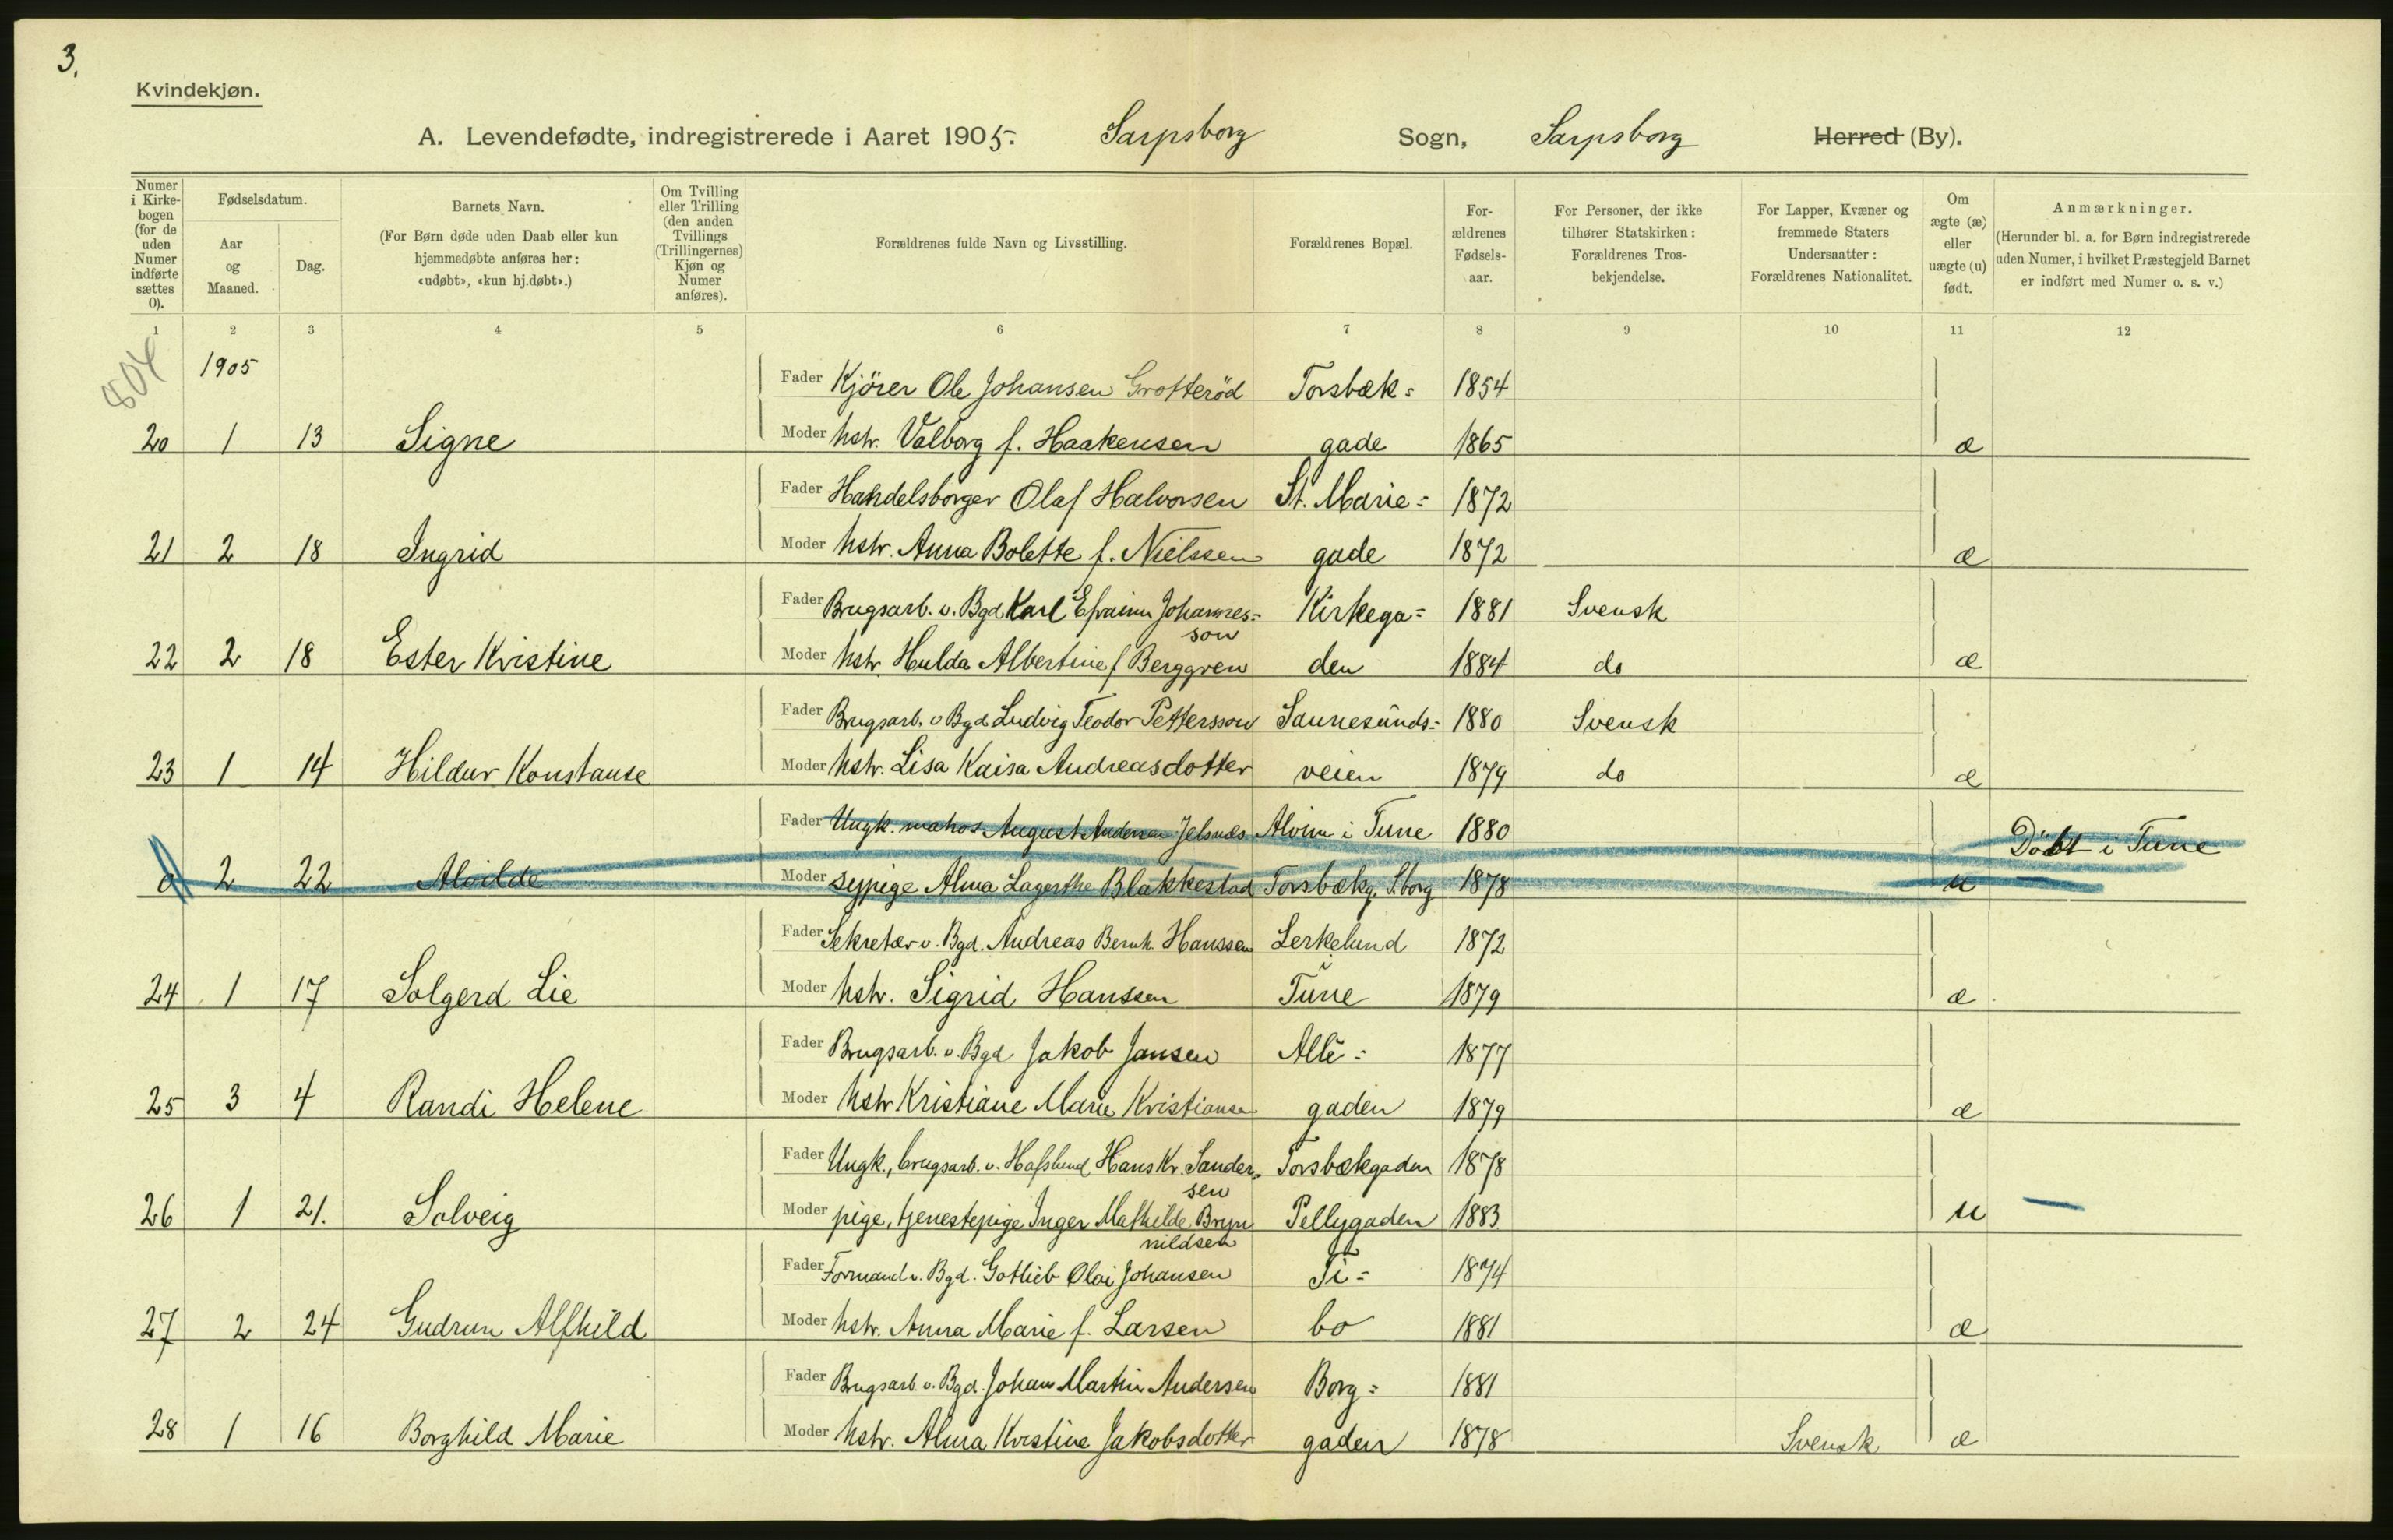 3.
Kvindekjøn.
A. Levendefødte, indregistrerede i Aaret 1905. Sarpsborg Sogn, Sarpsborg Herred (By).
Numer i Kirkebogen (for de uden Numer indførte sættes 0).
Fødselsdatum.
Aar og Maaned.
Dag.
Barnets Navn.
(For Børn døde uden Daab eller kun hjemmedøbte anføres her: «udøbt», «kun hj.døbt».)
Om Tvilling eller Trilling (den anden Tvillings (Trillingernes) Kjøn og Numer anføres).
Forældrenes fulde Navn og Livsstilling.
Forældrenes Bopæl.
Forældrenes Fødselsaar.
For Personer, der ikke tilhører Statskirken: Forældrenes Trosbekjendelse.
For Lapper, Kvæner og fremmede Staters Undersaatter: Forældrenes Nationalitet.
Om ægte (æ) eller uægte (u) født.
Anmærkninger.
(Herunder bl. a. for Børn indregistrerede uden Numer, i hvilket Præstegjeld Barnet er indført med Numer o. s. v.)
1 2 3 4 5 6 7 8 9 10 11 12
804
1905
Fader Kjörer Ole Johansen Grotteröd Torsbæk= 1854
20 1 13 Signe Moder hstr. Valborg f. Haakensen gade 1865 æ
Fader Handelsborger Olaf Halvorsen St. Marie= 1872
21 2 18 Ingrid Moder hstr. Anna Bolette f. Nielssen gade 1872 æ
Fader Brugsarb. v. Bgd Karl Efraim Johannes= Kirkega= 1881 Svensk
son
22 2 18 Ester Kristine Moder hstr. Hulda Albertine f Berggren den 1884 do æ
Fader Brugsarb. v Bgd Ludvig Teodor Pettersson Sannesunds= 1880 Svensk
23 1 14 Hildur Konstanse Moder hstr. Lisa Kaisa Andreasdotter veien 1879 do æ
Fader Ungk. matros August Andersen Jelsnæs Alvim i Tune 1880 Döbt i Tune
0 2 22 Alvilde Moder sypige Alma Lagerthe Blakkestad Torsbækg. S.borg 1878 u
Fader Sekretær v. Bgd. Andreas Bernh. Hanssen Lerkelund 1872
24 1 17 Solgerd Lie Moder hstr. Sigrid Hanssen Tune 1879 æ
Fader Brugsarb. v. Bgd Jakob Jansen Allé= 1877
25 3 4 Randi Helene Moder hstr Kristiane Marie Kristiansen gaden 1879 æ
Fader Ungk., brugsarb. v. Hafslund, Hans Kr. Sander= Torsbækgaden 1878
sen
26 1 21. Solveig Moder pige, tjenestepige Inger Mathilde Bryn Pellygaden 1883 u —
nildsen
Fader Formand v. Bgd. Gotlieb Olai Johansen Ti= 1874
27 2 24 Gudrun Alfhild Moder hstr. Anna Marie f. Larsen bo 1881 æ
Fader Brugsarb. v. Bgd. Johan Martin Andersen Borg= 1881
28 1 16 Borghild Marie Moder hstr. Alma Kristine Jakobsdotter gaden 1878 Svensk æ